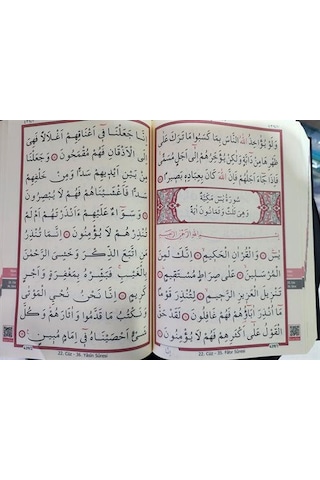 وَلَوْ يُؤَاخِذُ اللّٰهُ النَّاسَ بِمَا كَسَبُوا مَا تَرَكَ عَلٰى
ظَهْرِهَا مِنْ دَٓابَّةٍ وَلٰكِنْ يُؤَخِّرُهُمْ اِلٰٓى اَجَلٍ مُسَمًّى
فَاِذَا جَٓاءَ اَجَلُهُمْ فَاِنَّ اللّٰهَ كَانَ بِعِبَادِهٖ بَصٖيرًا
سُورَةُ يٰسٓ مَكِّيَّةٌ
وَهِيَ ثَلٰثٌ وَثَمَانُونَ اٰيَةً
بِسْمِ اللّٰهِ الرَّحْمٰنِ الرَّحٖيمِ
يٰسٓ وَالْقُرْاٰنِ الْحَكٖيمِ اِنَّكَ لَمِنَ
الْمُرْسَلٖينَ عَلٰى صِرَاطٍ مُسْتَقٖيمٍ
تَنْزٖيلَ الْعَزٖيزِ الرَّحٖيمِ لِتُنْذِرَ قَوْمًا
مَٓا اُنْذِرَ اٰبَٓاؤُهُمْ فَهُمْ غَافِلُونَ لَقَدْ حَقَّ
الْقَوْلُ عَلٰٓى اَكْثَرِهِمْ فَهُمْ لَا يُؤْمِنُونَ
22. Cüz - 35. Fâtır Sûresi
نَّا جَعَلْنَا فٖٓي اَعْنَاقِهِمْ اَغْلَالًا فَهِيَ
اِلَى الْاَذْقَانِ فَهُمْ مُقْمَحُونَ وَجَعَلْنَا
مِنْ بَيْنِ اَيْدٖيهِمْ سَدًّا وَمِنْ خَلْفِهِمْ
سَدًّا فَاَغْشَيْنَاهُمْ فَهُمْ لَا يُبْصِرُونَ
وَسَوَٓاءٌ عَلَيْهِمْ ءَاَنْذَرْتَهُمْ اَمْ لَمْ
تُنْذِرْهُمْ لَا يُؤْمِنُونَ اِنَّمَا تُنْذِرُ
مَنِ اتَّبَعَ الذِّكْرَ وَخَشِيَ الرَّحْمٰنَ
بِالْغَيْبِ فَبَشِّرْهُ بِمَغْفِرَةٍ وَاَجْرٍ
كَرٖيمٍ اِنَّا نَحْنُ نُحْيِ الْمَوْتٰى
وَنَكْتُبُ مَا قَدَّمُوا وَاٰثَارَهُمْ وَكُلَّ
شَيْءٍ اَحْصَيْنَاهُ فٖٓي اِمَامٍ مُبٖينٍ
22. Cüz - 36. Yâsîn Sûresi